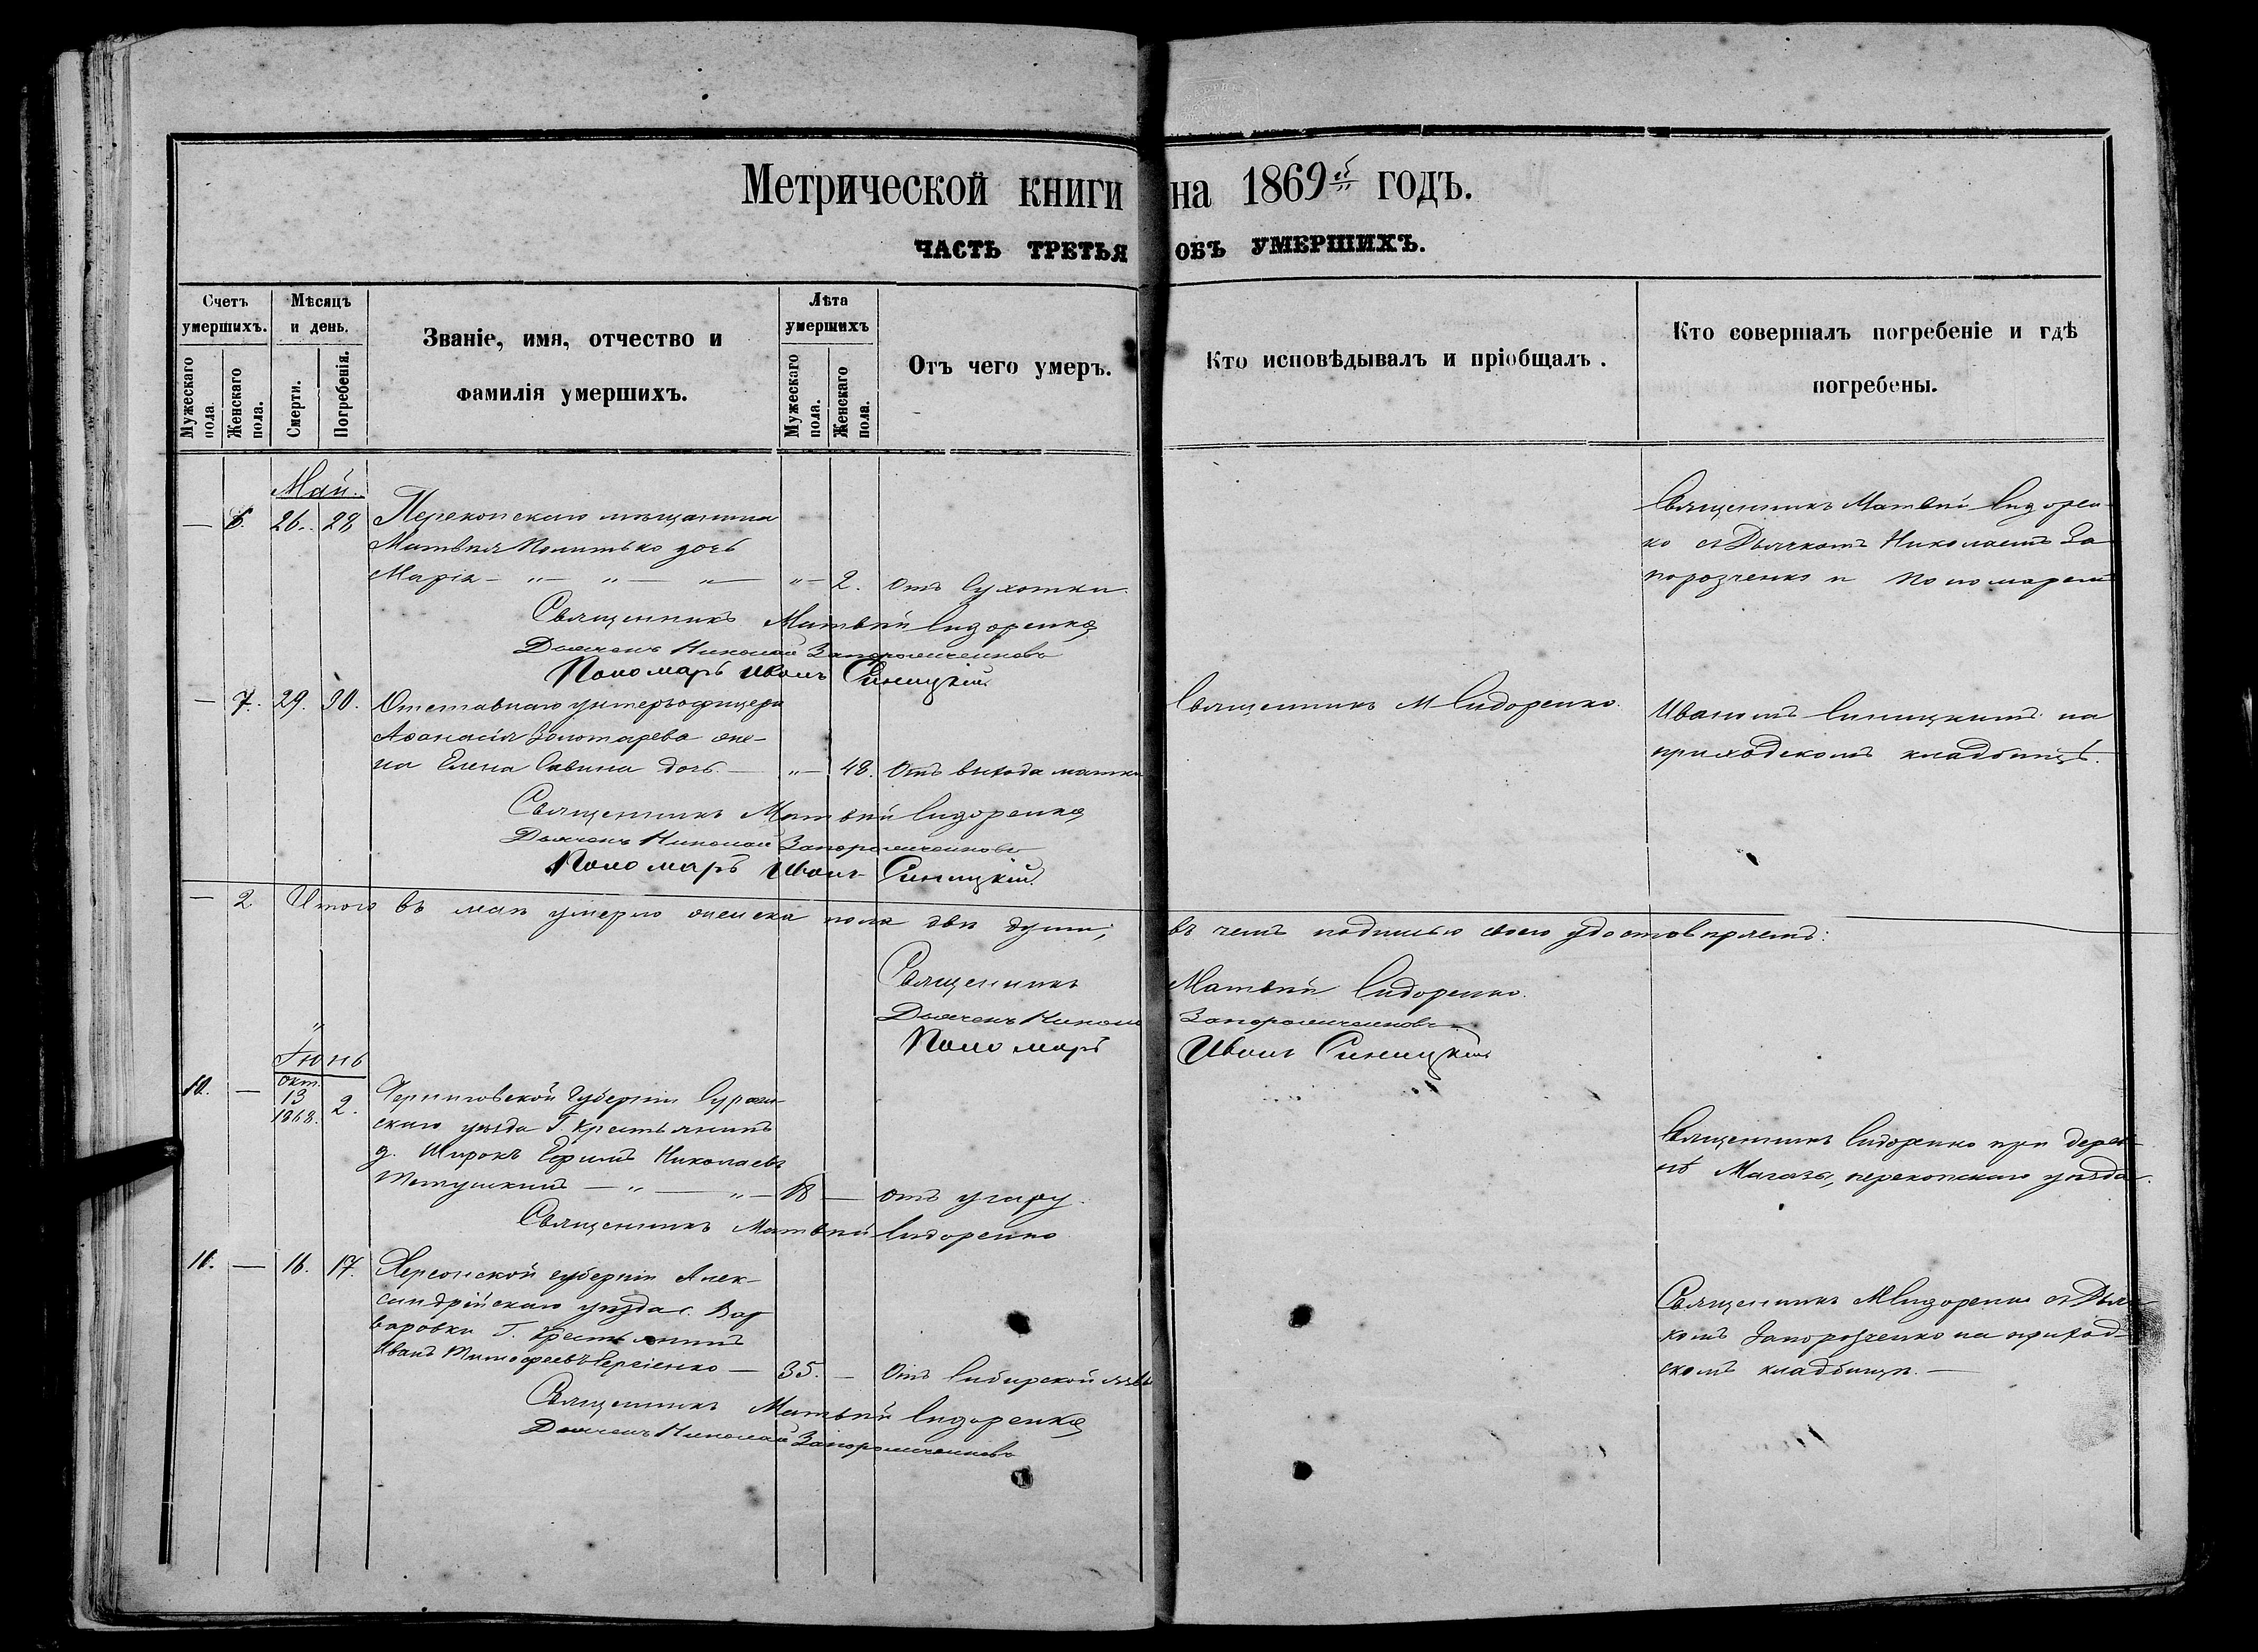 Метрической книги на 1869й годъ.
ЧАСТЬ ТРЕТЬЯ ОБЪ УМЕРШИХЪ.
Счетъ умершихъ.
Мужескаго пола.
Женскаго пола.
Мѣсяцъ и день.
Смерти.
Погребенія.
Званіе, имя, отчество и
фамилія умершихъ.
Лѣта умершихъ
Мужескаго пола.
Женскаго пола.
Отъ чего умеръ.
Кто исповѣдывалъ и пріобщалъ.
Кто совершалъ погребеніе и гдѣ
погребены.
Май.
— 6. 26. 28 Перекопскаго мѣщанина
Матвѣя дочь
Марія — „ — „ — „ — „ — 2. Отъ Сухотки.
Священникъ Матвѣй Сидоренко
Дьячекъ Николай Запорожченковъ
Пономарь Иванъ Синицкій
Священникъ Матвѣй Сидорен-
ко съ Дьячкомъ Николаемъ За
порозченко и Пономарем
— 7. 29. 30. Отставнаго унтеръофицера
Афанасія Золотарева же-
на Елена Савина дочь. — „ — 48. Отъ выхода матки
Священникъ М Сидоренко.
Иваномъ Синицкимъ на
приходскомъ кладбищѣ.
Священникъ Матвѣй Сидоренко
Дьячекъ Николай Запорожченковъ
Пономарь Иванъ Синицкій.
— 2 Итого въ маѣ умерло женска пола двѣ души, въ чемъ подписью своею удостовѣряемъ:
Священникъ Матвѣй Сидоренко.
Дьячекъ Никола Запорожченковъ
Пономарь Иванъ Синицкій
Іюнь
10. — окт. 13 1868. 2. Черниговской Губерніи Сураж-
скаго уѣзда Г. Крестьянинъ
д. Ефимъ Николаевъ
— „ — „ — 18 — отъ угару.
Священникъ Матвѣй Сидоренко
Священникъ Сидоренко при дерев-
нѣ перекопскаго уѣзда.
11. — 16. 17. Херсонской губерніи Алек-
сандрійскаго уѣзда с. Вар
варовки Г. Крестьянинъ
Иванъ Тимофеевъ Сергіенко — 35. — Отъ Сибирской язвы
Священникъ Матвѣй Сидоренко
Дьячекъ Николай Запорожченковъ
Священникъ МСидоренко съ Дьяч
комъ Запорозченко на приход-
скомъ кладбищѣ. —